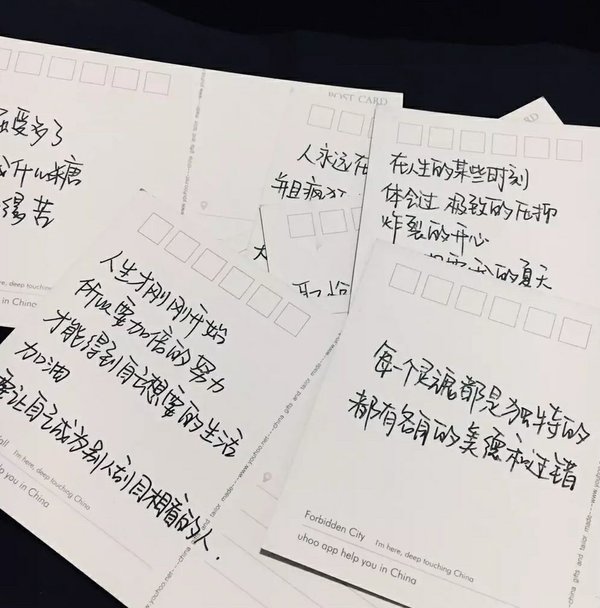 受多了
什么糖
得苦
POST CARD
人永远在
并且疯狂
在人生的某些时刻
体会过 极致的压抑
炸裂的开心
的夏天
人生才刚刚开始
所以要加倍的努力
才能得到自己想要的生活
加油
要让自己成为别人刮目相看的人.
I'm here, deep touching China
help you in China
www.youhoo.net----china gifts and tailor made---
每个灵魂都是独特的
都有各自的美德和过错
Forbidden City I'm here, deep touching China
uhoo app help you in China